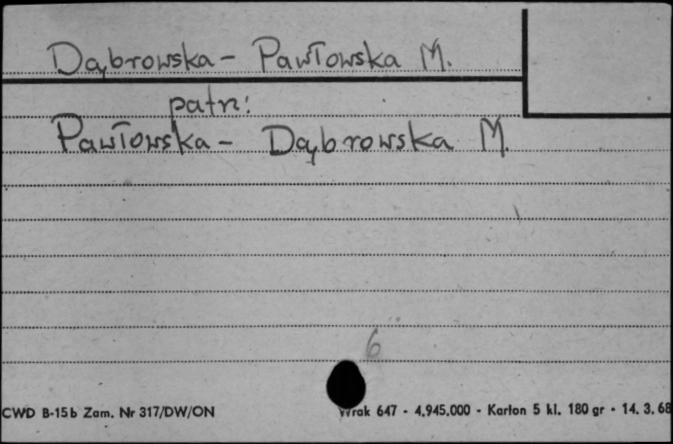 Dąbrowska - Pawłowska M.
patrz:
Pawłowska - Dąbrowska M.
6
CWD B-15b Zam. Nr 317/DW/ON
647 - 4.945.000 - Karton 5 kl. 180 gr - 14. 3. 68